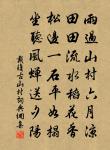 雨過山村六月涼
田田流水稻花香
松邊一石平如榻
坐聽風蟬送夕陽
戴復古山村詞典網